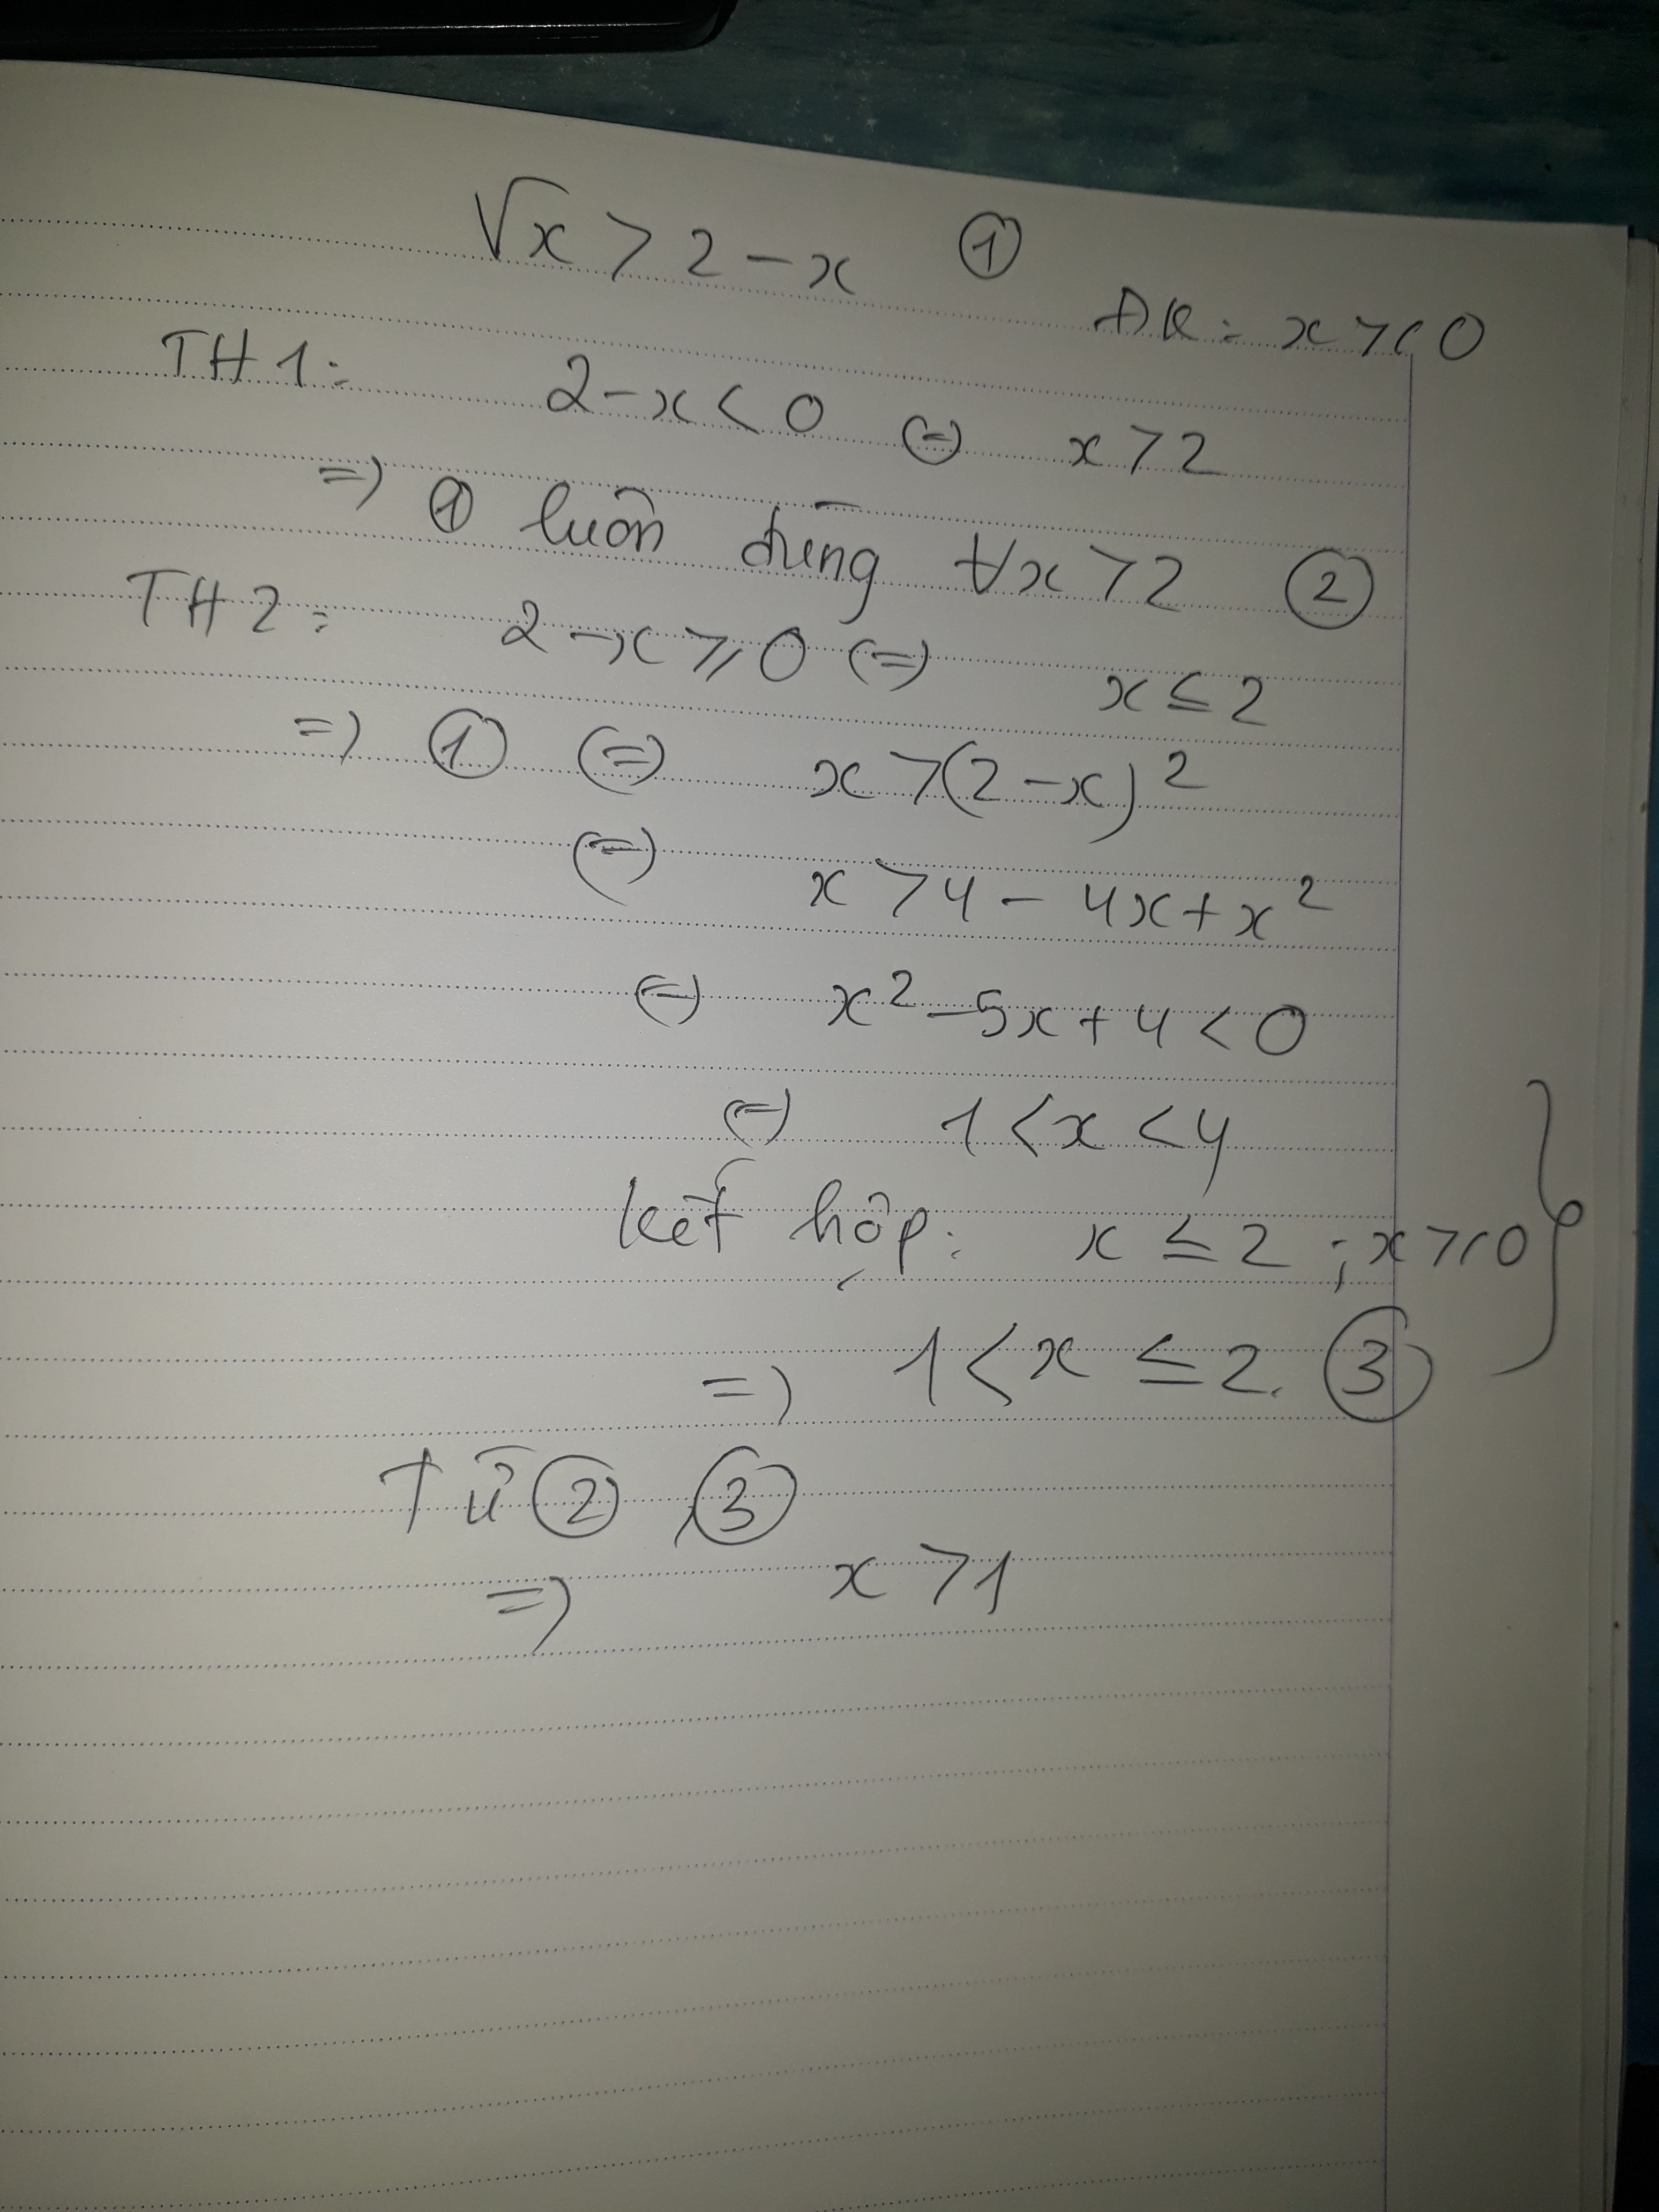 √x > 2 - x ①
ĐK: x ≥ 0
TH1: 2 - x < 0 ⇔ x > 2
⇒ ① luôn đúng ∀x > 2 ②
TH2: 2 - x ≥ 0 ⇔ x ≤ 2
⇒ ① ⇔ x > (2 - x)²
⇔ x > 4 - 4x + x²
⇔ x² - 5x + 4 < 0
⇔ 1 < x < 4
kết hợp: x ≤ 2 ; x ≥ 0 }
⇒ 1 < x ≤ 2. ③
Từ ② , ③
⇒ x > 1